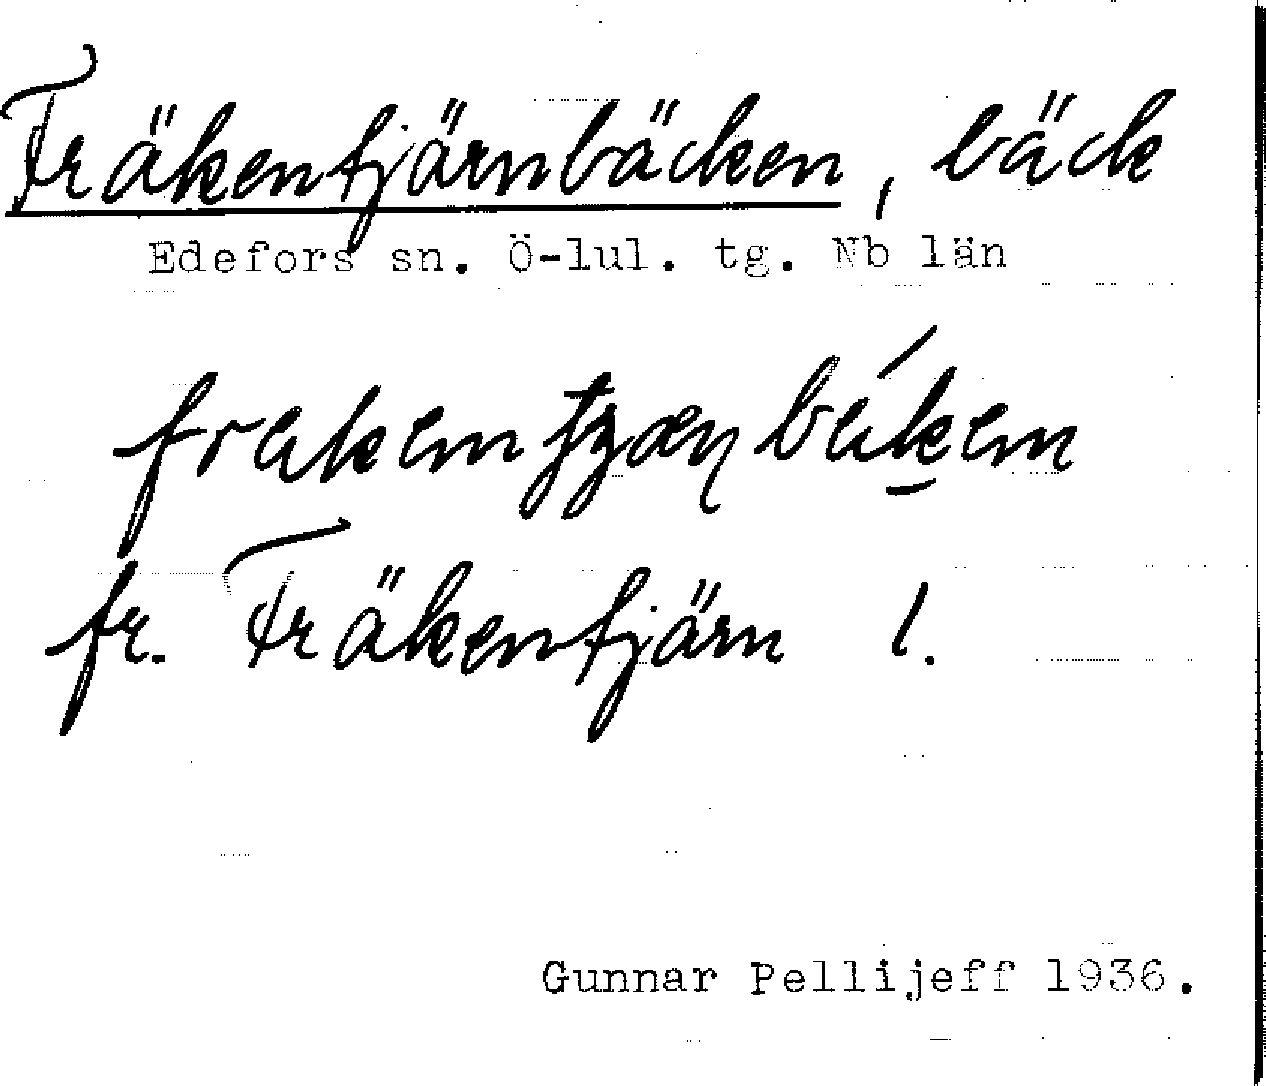 Fräkentjärnbäcken, bäck
Edefors sn. Ö-lul. tg. Nb län
fr. Fräkentjärn l.
Gunnar Pellijeff 1936.